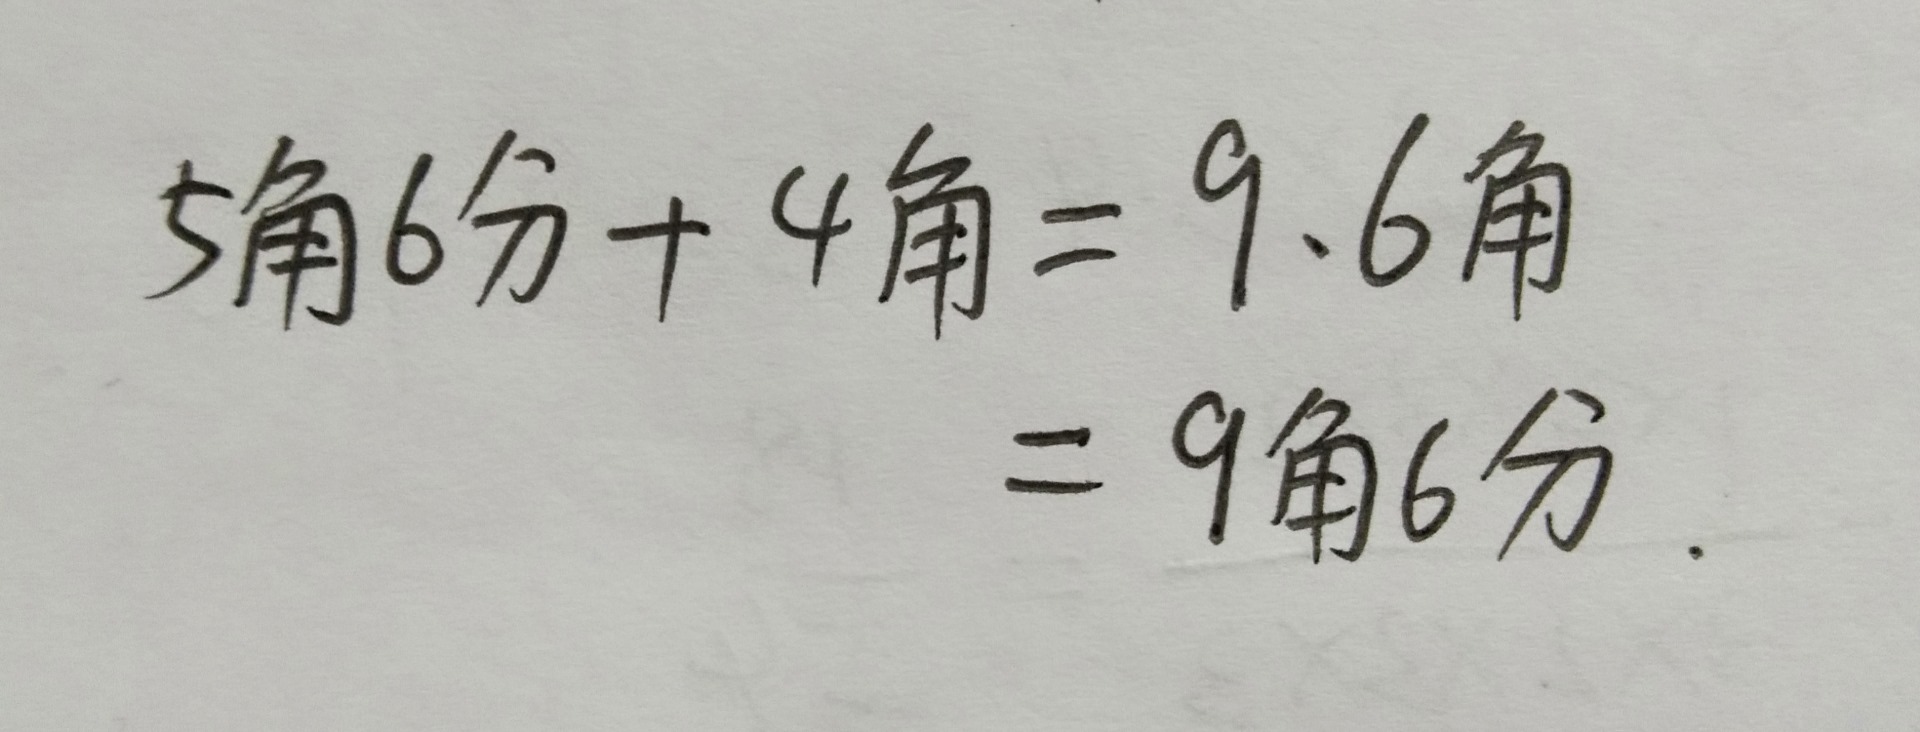 5角6分+4角=9.6角
=9角6分.